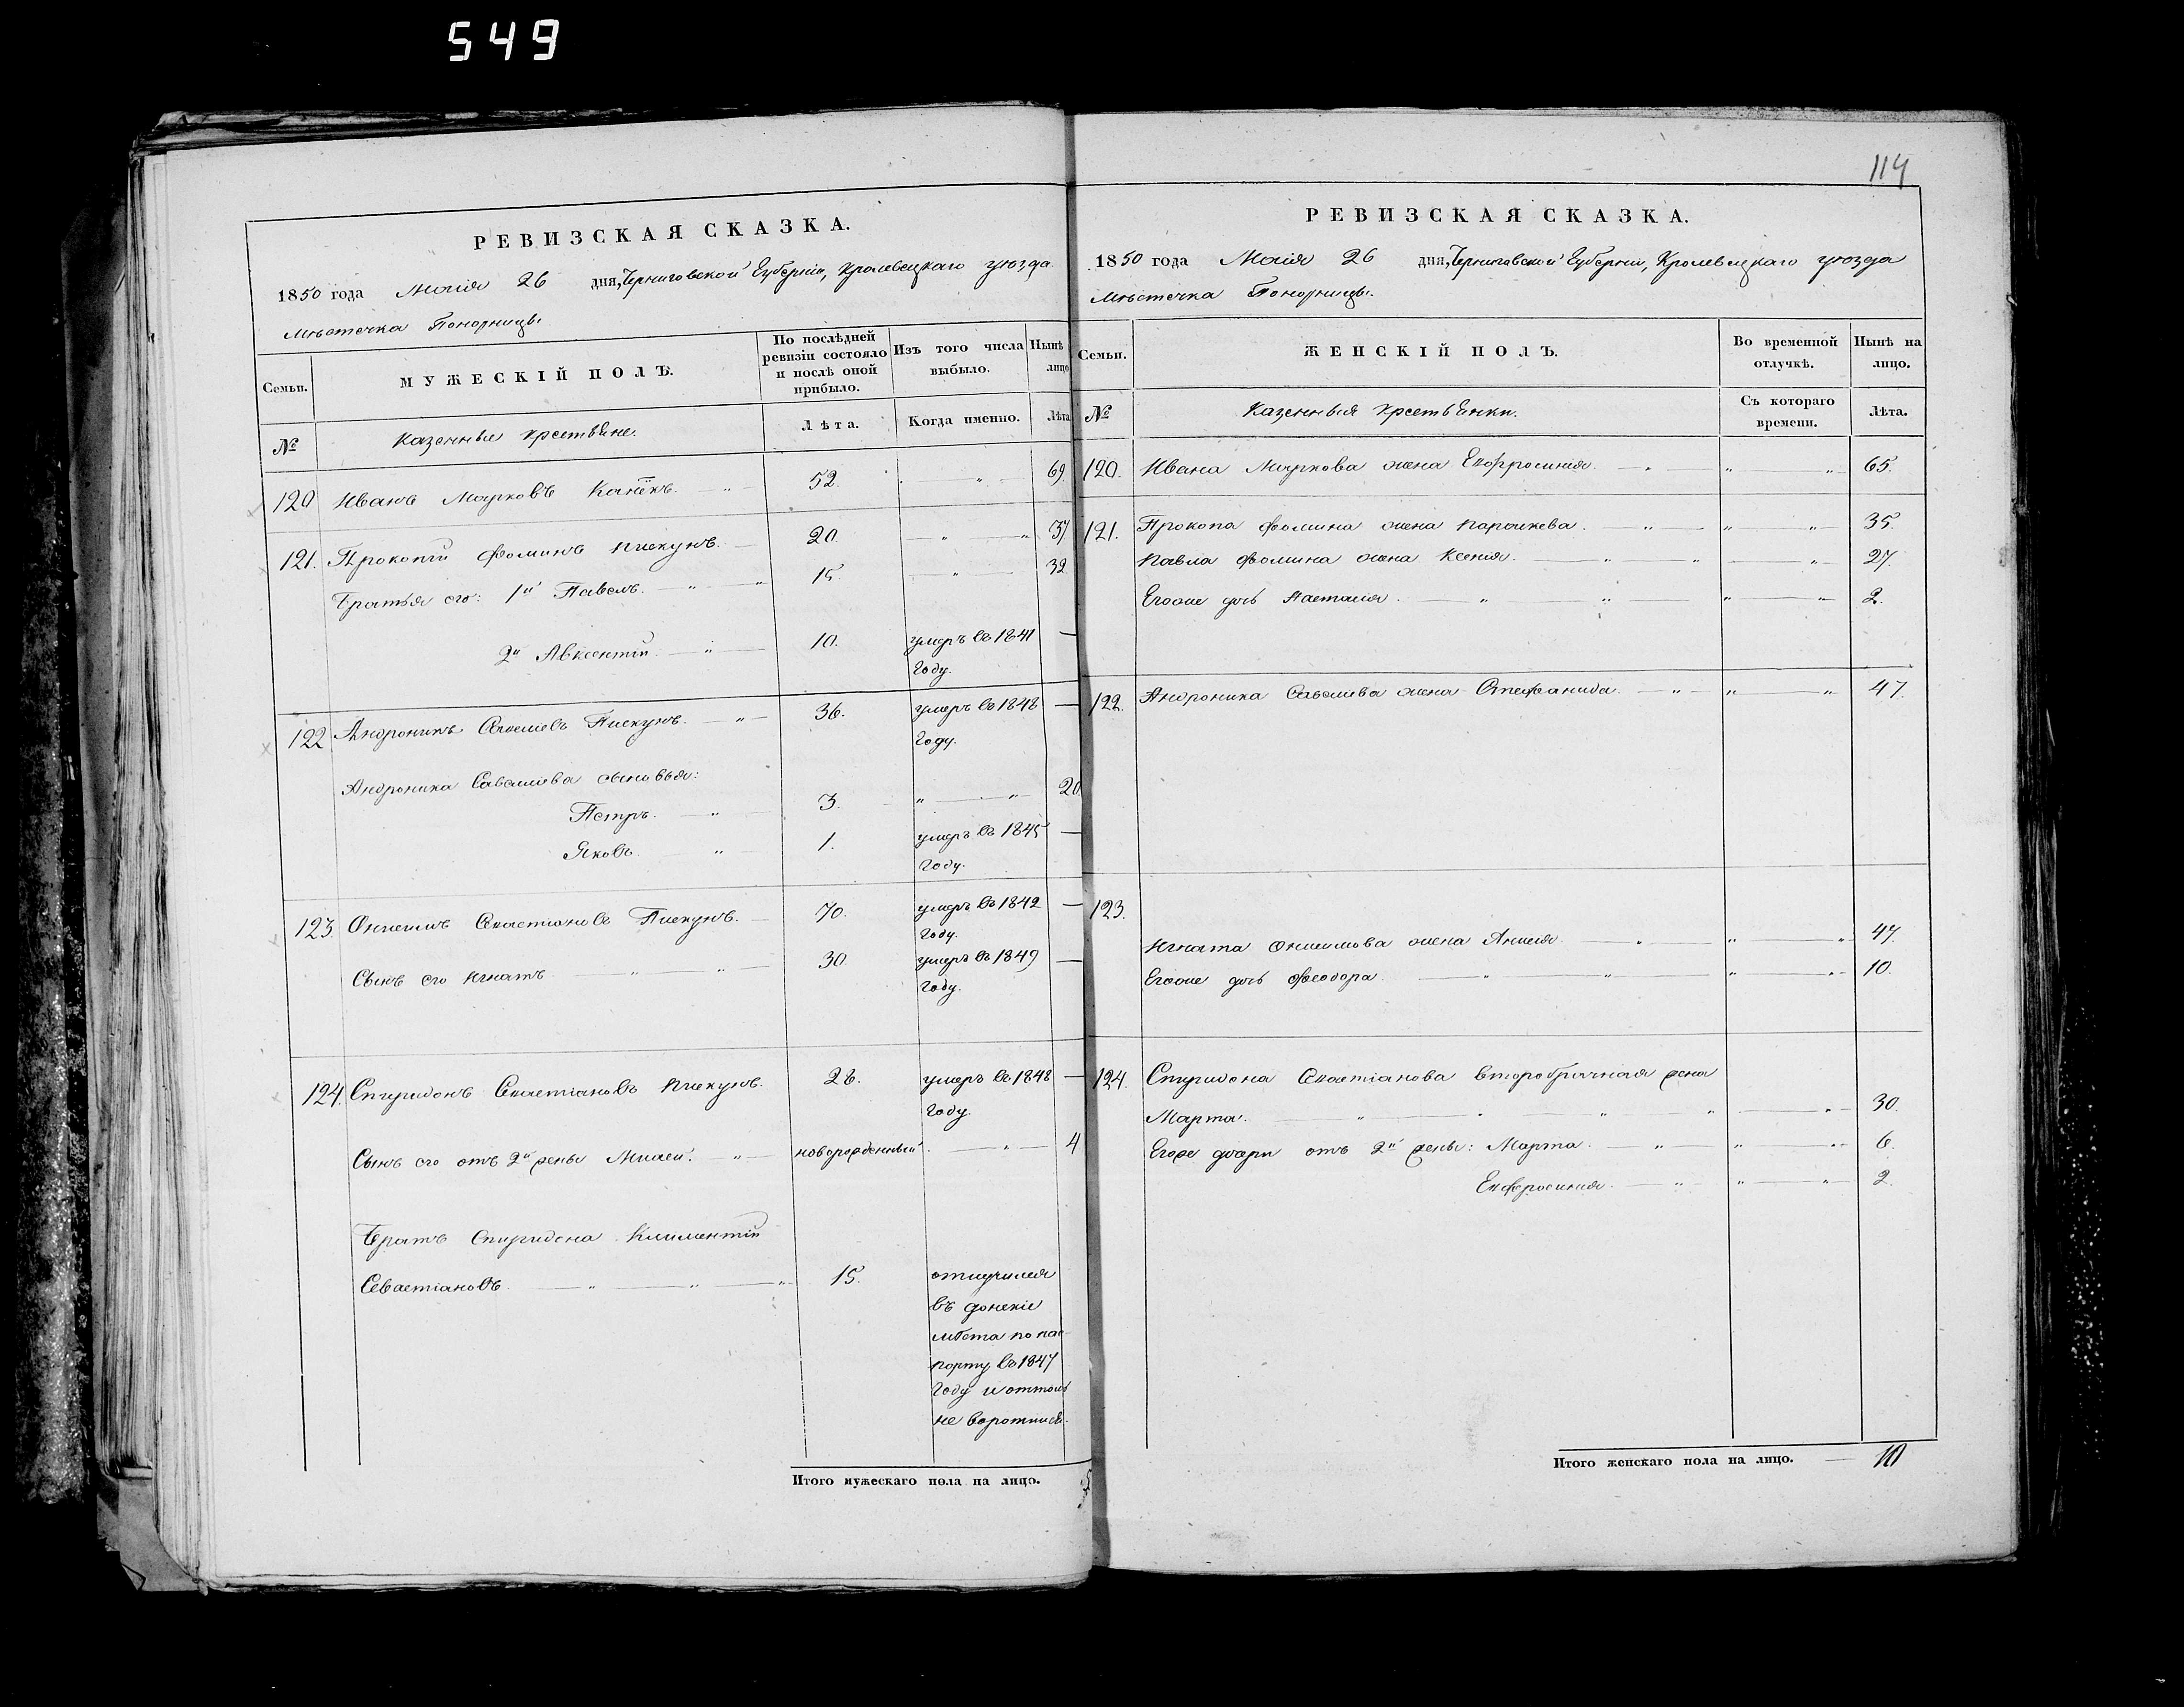 549
РЕВИЗСКАЯ СКАЗКА.
1850 года Маія 26 дня, Черниговской Губерніи, Кролевецкаго уѣзда
мѣстечка Понорницы
Семьи.
МУЖЕСКІЙ ПОЛЪ.
По послѣдней ревизіи состояло и послѣ оной прибыло.
Изъ того числа выбыло.
Нынѣ лицо
№
Казенные крестьяне.
Лѣта.
Когда именно.
Лѣта
120 Иванъ Марковъ 52. " 69.
121. Прокопій Фоминъ Пискунъ. 20. " " 37
Братья его: 1й Павелъ. " " 15. " 32
2й Авксентій. " 10. умеръ въ 1841 —
году.
122 Андроникъ Савелиевъ Пискунъ. " 36. умеръ въ 1848 —
году.
Андроника Савелиева сыновья:
Петръ. " 3. " " 20.
Яковъ. " 1. умеръ въ 1845 —
году.
123. Онисимъ Севастіановъ Пискунъ. 70. умеръ въ 1842 —
году.
Сынъ его Игнатъ " " 30. умеръ въ 1849 —
году.
124. Спиридонъ Севастіановъ Пискунъ. 28. умеръ въ 1848 —
году.
Сынъ его отъ 2й жены " новорожденный. " 4
Братъ Спиридона Климентій
Севастіановъ. " " " 15. отлучился
въ донскіе
мѣста по пас-
порту въ 1847
году и оттоль
не воротился.
Итого мужескаго пола на лицо.
114
РЕВИЗСКАЯ СКАЗКА.
1850 года Маія 26 дня, Черниговской Губерніи, Кролевецкаго уѣзда
мѣстечка Понорницы.
Семьи.
ЖЕНСКІЙ ПОЛЪ.
Во временной отлучкѣ.
Нынѣ на лицо.
№
Казенныя крестьянки.
Съ котораго времени.
Лѣта.
120. Ивана Маркова жена Евфросинія. " " " 65.
121. Прокопа Фомина жена Параскева. " " " 35.
Павла Фомина жена Ксенія. " " " 27.
Егоже дочь Настасія. " " " " 2.
122. Андроника Савелиева жена Стефанида. " " " 47.
123.
Игната Онисимова жена Анисія " " " 47.
Егоже дочь Феодора. " " " " 10.
124. Спиридона Севастіанова второбрачная жена
Марта. " " " " " 30.
Егоже дочери отъ 2й жены: Марта. " " " 6.
Евфросинія. " " " 2.
Итого женскаго пола на лицо. — 10